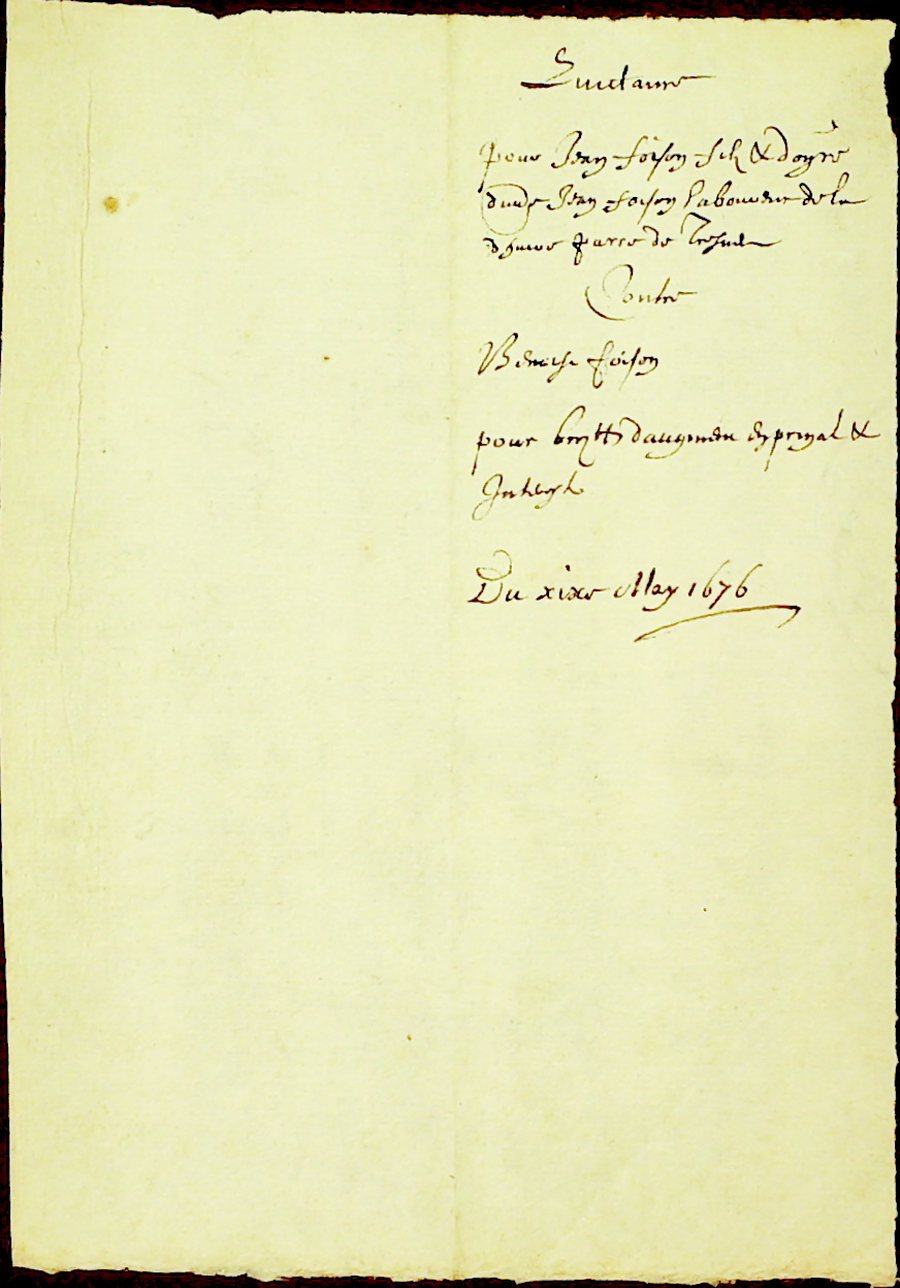 Quictance
pour Jean foison filz & don̄re
dud Jean foison laboureur de la
parre de
Contre
Benoist foison
pour daugment en prinal &
Interest
Du xixe May 1676